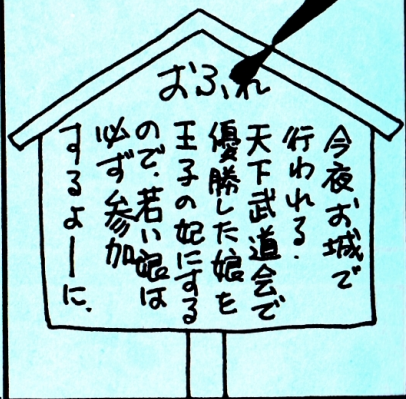 おふれ
今夜お城で
行われる.
天下武道会で
優勝した娘を
王子の妃にする
ので、若い娘は
必ず参加
するよーに.